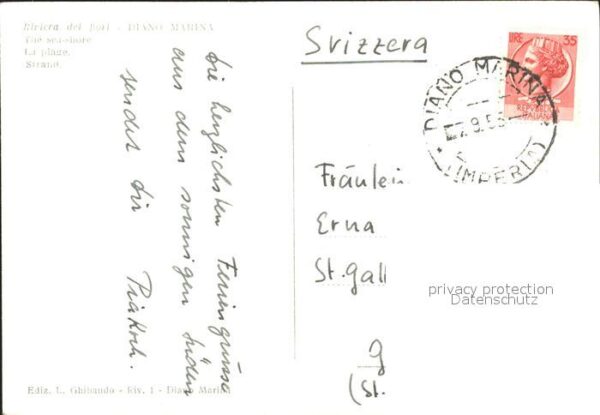 Riviera dei fiori - DIANO MARINA
The sea-shore
La plage.
Strand.
Svizzera
LIRE 35
REPUBBLICA
ITALIANA
DIANO MARINA
(IMPERIA)
die herzlichsten Feriengrüsse
aus dem sonnigen Süden
sendet dir
Fräulein
Erna
St. Gall
g
(St.
privacy protection
Datenschutz
Ediz. L. Ghibaudo - Riv. 1 - Diano Marina